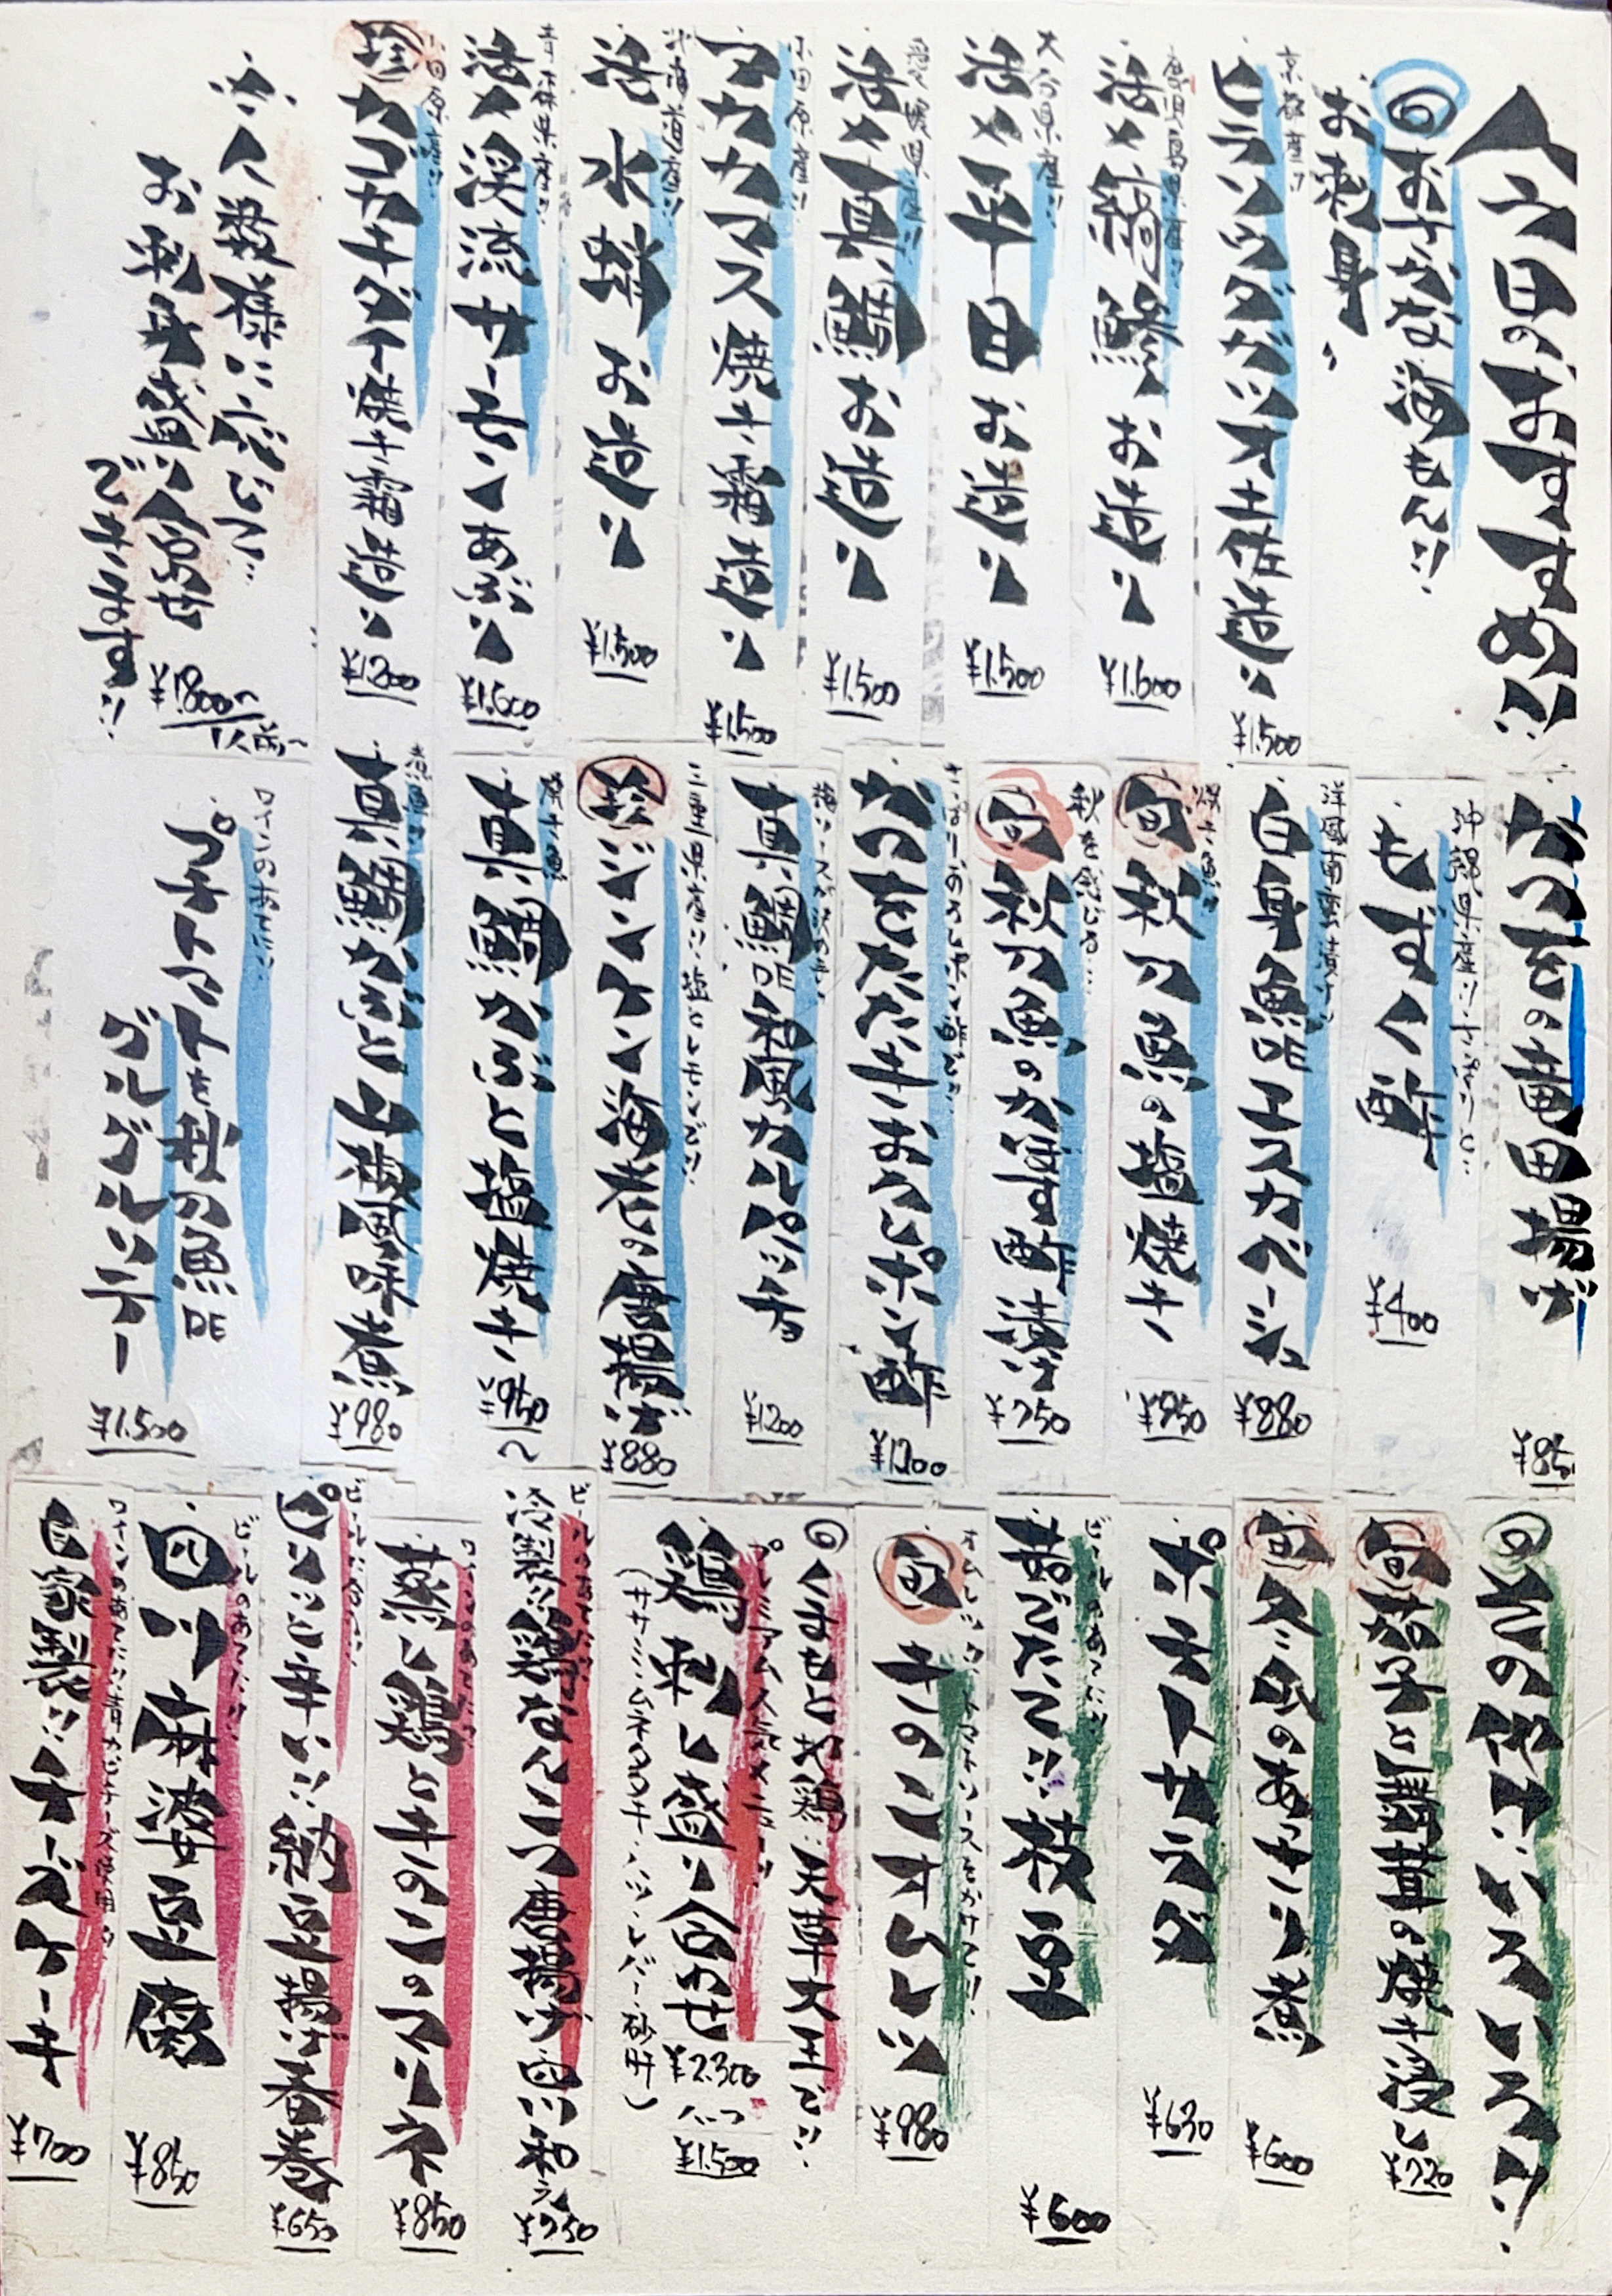 今日のおすすめ!!
◎おさかな海もん!!
お刺身〃
京都産!!
ヒラソウダガツオ土佐造り
¥1.500
鹿児島県産!!
活〆縞鯵お造り
¥1.600
大分県産!!
活〆平目お造り
¥1.500
愛媛県産!!
活〆真鯛お造り
¥1.500
小田原産!!
アカカマス焼き霜造り
¥1.500
北海道産!!
活水蛸お造り
¥1.500
青森県産!!
活〆渓流サーモンあぶり
¥1.500
小田原産!!
珍カゴカキダイ焼き霜造り
¥1.200
☆人数様に応じて…
お刺身盛り合せ
できます!!
¥1.800〜
1人前〜
かつをの竜田揚げ
¥850
沖縄県産!!さっぱりと…
もずく酢
¥400
洋風南蛮漬け!!
白身魚DEエスカベーシュ
¥880
焼き魚!!
旬秋刀魚の塩焼き
¥950
秋を感じる…
旬秋刀魚のかぼす酢漬け
¥750
かつをたたきおろしポン酢
¥1200
真鯛DE和風カルパッチョ
¥1200
三重県産!!塩とレモンで!!
珍ジンケン海老の唐揚げ
¥880
焼き魚
真鯛かぶと塩焼き
¥950〜
煮魚!!
真鯛かぶと山椒風味煮
¥980
ワインのあてに!!
プチトマトと秋刀魚DE
グルグルソテー
¥1.500
◎その他いろいろ!!
旬茄子と茗荷の焼き浸し
¥720
旬冬瓜のあっさり煮
¥600
ポテトサラダ
¥630
ビールのあてに!!
茹でたて!!枝豆
¥600
旬きのこオムレツ
¥980
◎くまもと地鶏:天草大王で!!
鶏刺し盛り合わせ
¥2.300
ハーフ
¥1.500
(ササミ・ムネ・モモ・ハツ・レバー・砂肝)
ビールのあてに!!
冷製!!鶏なんこつ唐揚げ四川和え
¥750
ワインのあてに!!
蒸し鶏とキのコのマリネ
¥850
ビールに合う!!
ピリッと辛い!!納豆揚げ春巻
¥650
ビールのあてに!!
四川麻婆豆腐
¥850
ワインのあてに!!青カビチーズ使用
自家製!!チーズケーキ
¥700